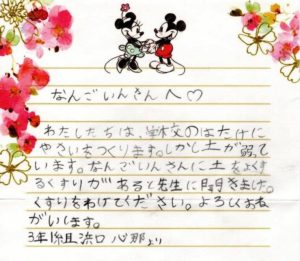 なんごいんさんへ♡
わたしたちは、学校のはたけに
やさいをつくります。しかし土が弱って
います。なんごいんさんに土をよくす
るくすりがあると先生に聞きました。
くすりをわけてください。よろしくおね
がいします。
3年1組浜口 心那より